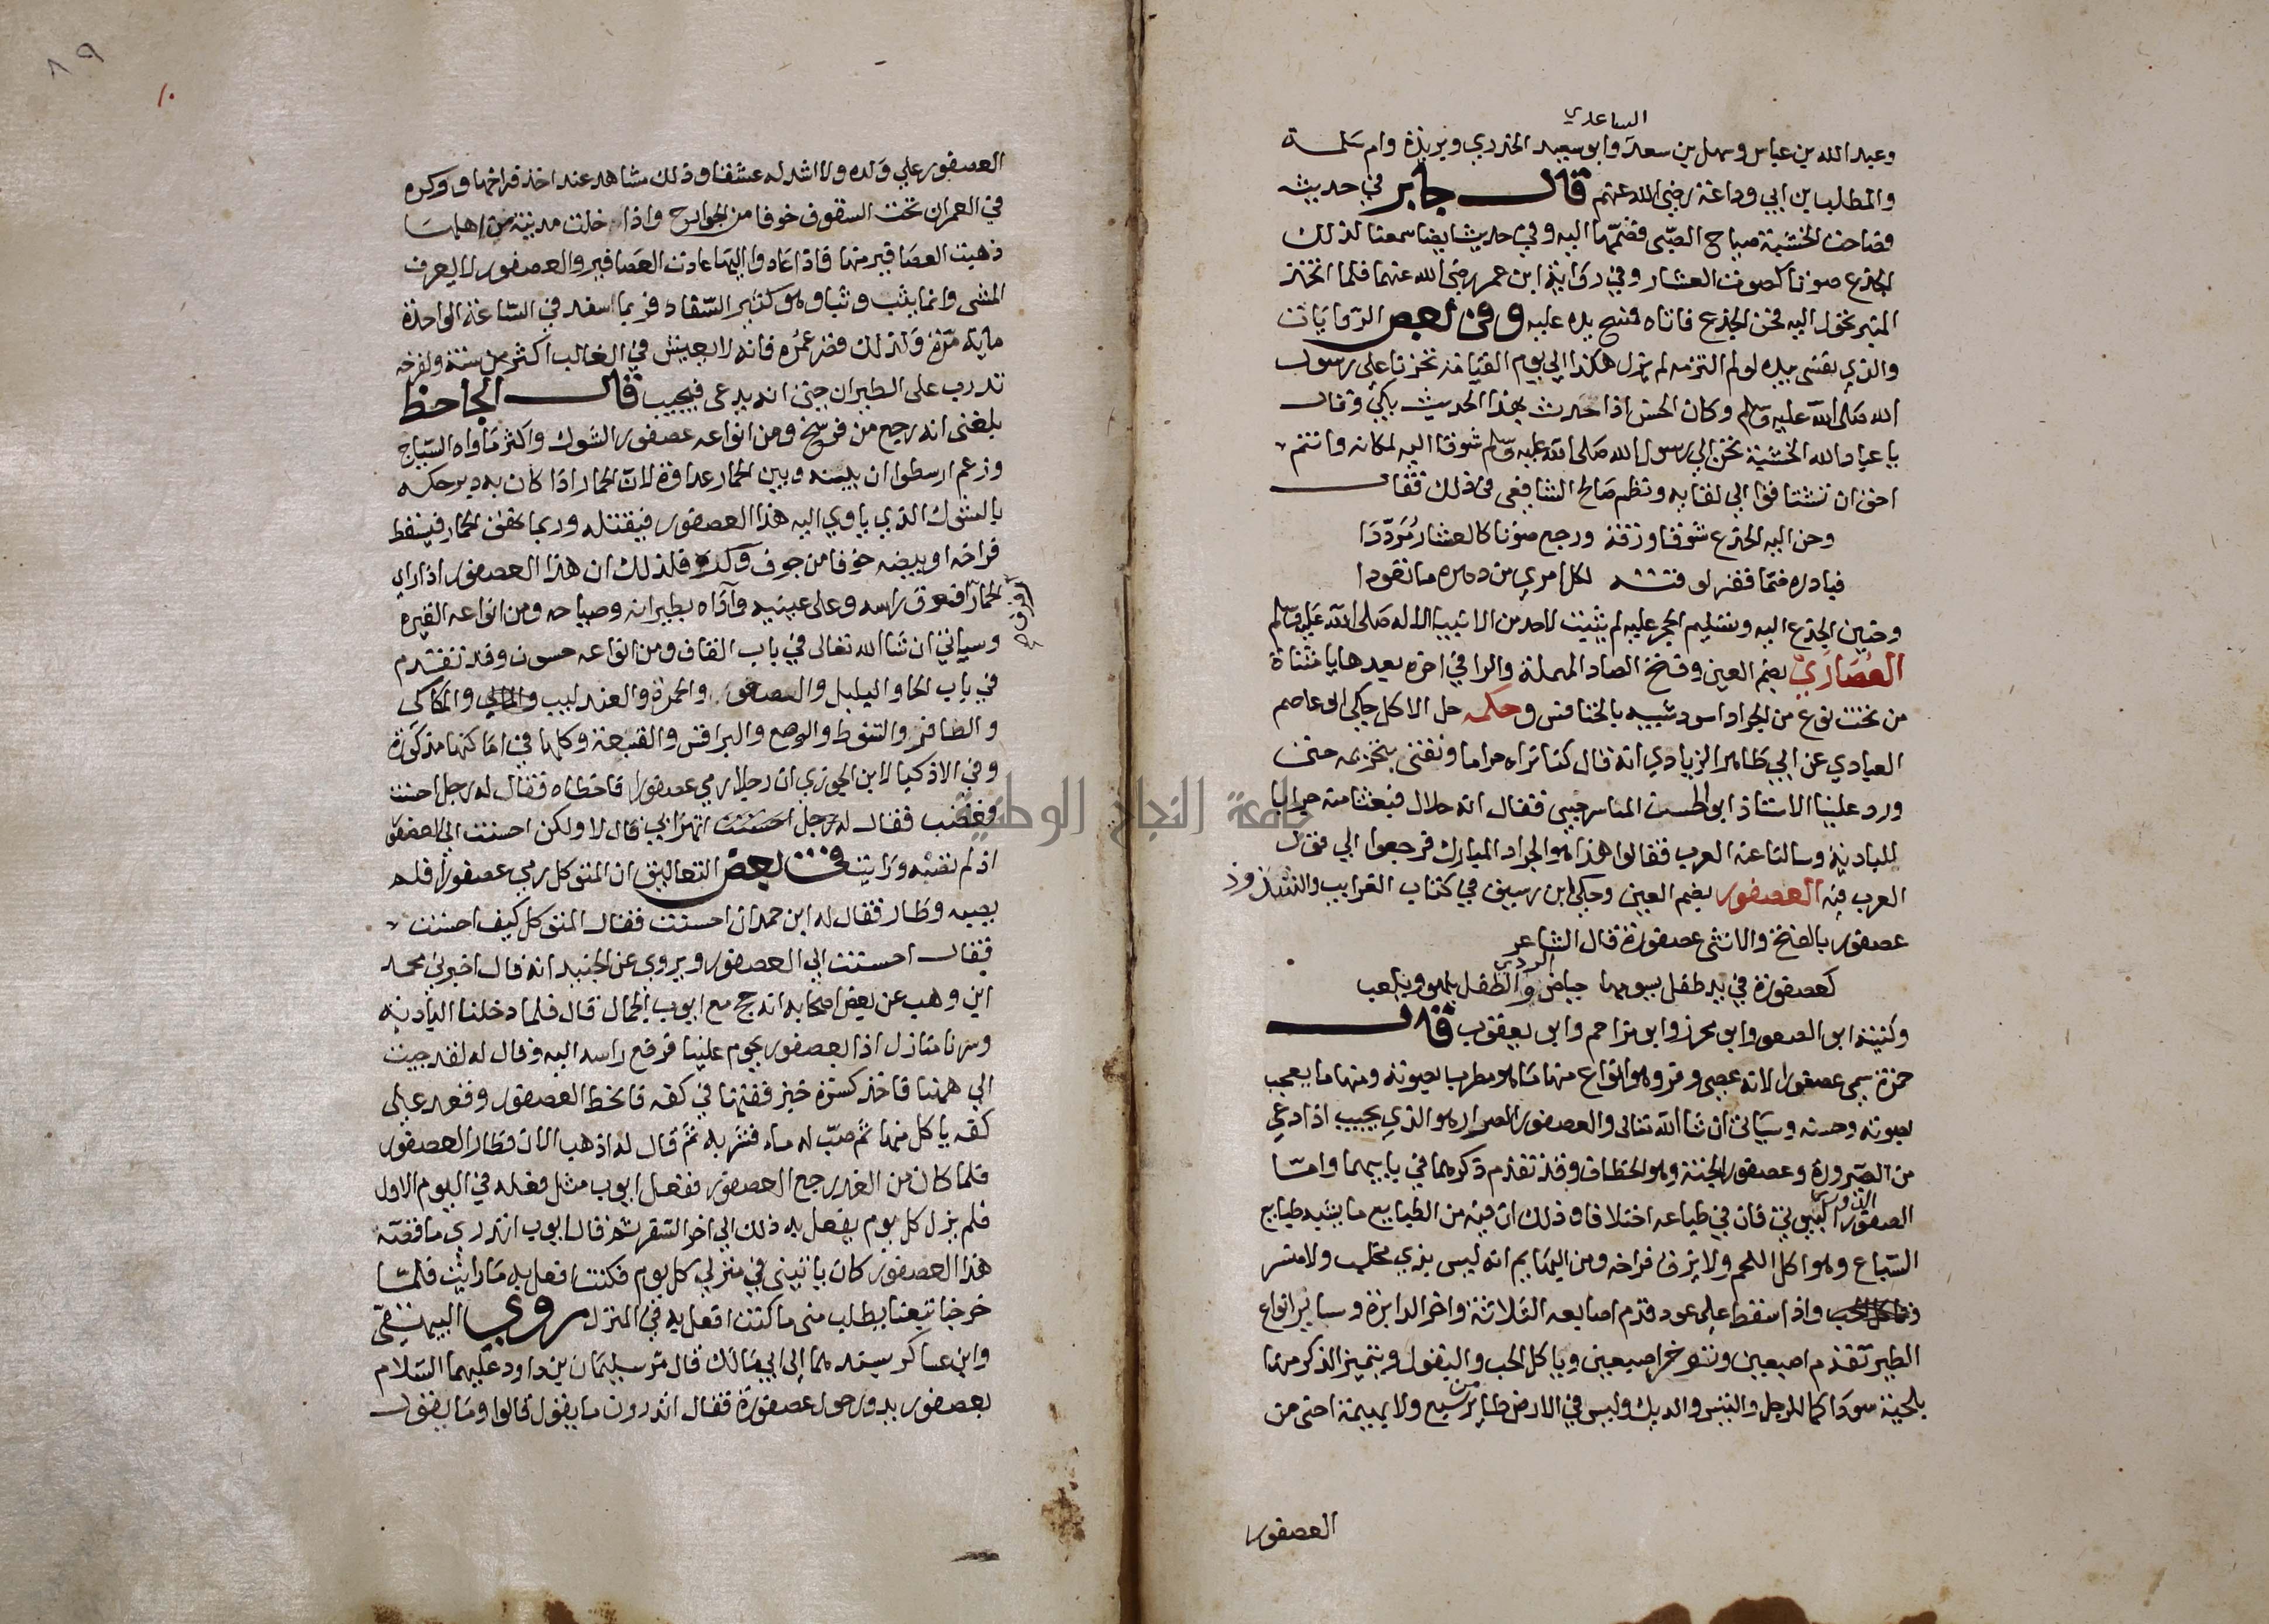 الساعدي
وعبد الله بن عباس وسهل بن سعد وابو سعيد الخدري وبريدة وام سلمة
والمطلب بن ابي وداعة رضي الله عنهم قال جابر في حديثه
فصاحت الخشبة صياح الصبي فضمها اليه وفي حديثه ايضا سمعنا لذلك
الجذع صوتا كصوت العشار وفي رواية ابن عمر رضي الله عنهما فلما اتخذ
المنبر تحول اليه فحن الجذع فاتاه فمسح يده عليه وفي بعض الروايات
والذي نفسي بيده لو لم التزمه لم يزل هكذا الي يوم القيامة تحزنا على رسول
الله صلى الله عليه وسلم وكان الحسن اذا حدث بهذا الحديث بكي وقال
يا عباد الله الخشبة تحن الي رسول الله صلى الله عليه وسلم شوقا اليه لمكانه وانتم
احق ان تشتاقوا الي لقايه ونظم صالح الشافعي في ذلك فقال
وحن اليه الجذع شوقا ورقة ورجع صوتا كالعشار مرددا
فبادره ضما فقر لوقته لكل امري من دهره ما تعودا
وحنين الجذع اليه وتسليم الحجر عليه لم يثبت لاحد من الانبيا الا له صلى الله عليه وسلم
العصاري بضم العين وفتح الصاد المهملة والرا في اخره بعدها يا مثناة
من تحت نوع من الجراد اسود شبيه بالخنافس وحكمه حل الاكل حكي ابو عاصم
العبادي عن ابي طاهر الزيادي انه قال كنا نراه حراما ونفتي بتحريمه حتى
ورد علينا الاستاذ ابو الحسن الماسرجسي فقال انه حلال فبعثنا منه جرابا
للبادية وسالنا عنه العرب فقالوا هذا هو الجراد المبارك فرجعوا الي قول
العرب فيه العصفور بضم العين وحكي ابن رسيق في كتاب الغرايب والشذوذ
عصفور بالفتح والانثى عصفورة قال الشاعر
كعصفورة في يد طفل يسومها حياض الردي والطفل يلهو ويلعب
وكنيته ابو الصعو وابو محرز وابو مزاحم وابو يعقوب قال
حمزة سمي عصفورا لانه عصى وفر وهو انواع منها ما هو مطرب بصوته ومنها ما يعجب
بصوته وحسنه وسياتي ان شا الله تعالى والعصفور الصرار هو الذي يجيب اذا دعي
من الصرورة وعصفور الجنة وهو الخطاف وقد تقدم ذكرهما في بابيهما واما
العصفور الدوري البيوتي فان في طباعه اختلافا وذلك ان فيه من الطبايع ما يشبه طبايع
السباع وهو اكل اللحم ولا يزق فراخه ومن البهايم انه ليس بذي مخلب ولا منسر
واذا سقط علي عود قدم اصابعه الثلاثة واخر الدابرة وساير انواع
الطير تقدم اصبعين وتوخر اصبعين وياكل الحب والبقول ويتميز الذكر منها
بلحية سودا كما للرجل والتيس والديك وليس في الارض طاير من سبع ولا بهيمة احنى من
العصفور
٨٩
١٠
العصفور علي ولده ولا اشد له عشقا وذلك مشاهد عند اخذ فراخها ووكره
في العمران تحت السقوف خوفا من الجوارح واذا خلت مدينة من اهلها
ذهبت العصافير منها فاذا عادوا اليها عادت العصافير والعصفور لا يعرف
المشى وانما يثب وثبا وهو كثير السفاد فربما سفد في الساعة الواحدة
ماية مرة ولذلك قصر عمره فانه لا يعيش في الغالب اكثر من سنة ولفرخه
تدرب على الطيران حتى انه يدعى فيجيب قال الجاحظ
بلغني انه يرجع من فرسخ ومن انواعه عصفور الشوك واكثر ماواه السياج
وزعم ارسطوا ان بينه وبين الحمار عداوة لان الحمار اذا كان به دبر حكه
بالشوك الذي ياوي اليه هذا العصفور فيقتله وربما نهق الحمار فيسقط
فراخه او بيضه خوفا من جوف وكره فلذلك ان هذا العصفور اذا راي
الحمار رفرف فوق راسه وعلى عينيه وآذاه بطيرانه وصياحه ومن انواعه القبرة
وسياتي ان شا الله تعالى في باب القاف ومن انواعه حسون وقد تقدم
في باب الحا والبلبل والصعو والحمرة والعندليب والمكاكى
والصافر والتنوط والوصع والبراقش والقبعة وكلها في اماكنها مذكورة
وفي الاذكيا لابن الجوزي ان رجلا رمي عصفورا فاخطاه فقال له رجل احسنت
فغضب فقال له رجل احسنت اتهزا بي قال لا ولكن احسنت الي العصفور
اذ لم تصبه ورايت في بعض التعاليق ان المتوكل رمي عصفورا فلم
يصبه وطار فقال له ابن حمدان احسنت فقال المتوكل كيف احسنت
فقال احسنت الي العصفور ويروي عن الجنيد انه قال اخبرني محمد
ابن وهب عن بعض اصحابه انه حج مع ايوب الجمال قال فلما دخلنا البادية
وسرنا منازل اذا بعصفور يحوم علينا فرفع راسه اليه وقال له لقد جيت
الي ههنا فاخذ كسرة خبز ففتها في كفه فانحط العصفور وقعد على
كفه ياكل منها ثم صب له ماء فشربه ثم قال له اذهب الان فطار العصفور
فلما كان من الغد رجع العصفور ففعل ايوب مثل فعله في اليوم الاول
فلم يزل كل يوم يفعل به ذلك الي اخر السفر ثم قال ايوب اتدري ما قصة
هذا العصفور كان ياتيني في منزلي كل يوم فكنت افعل به ما رايت فلما
خرجنا تبعنا يطلب مني ما كنت افعل به في المنزل روي البيهقي
وابن عساكر بسندهما الي ابي مالك قال مر سليمان بن داود عليهما السلام
بعصفور يدور حول عصفورة فقال اتدرون ما يقول قالوا وما يقول
جامعة النجاح الوطنية